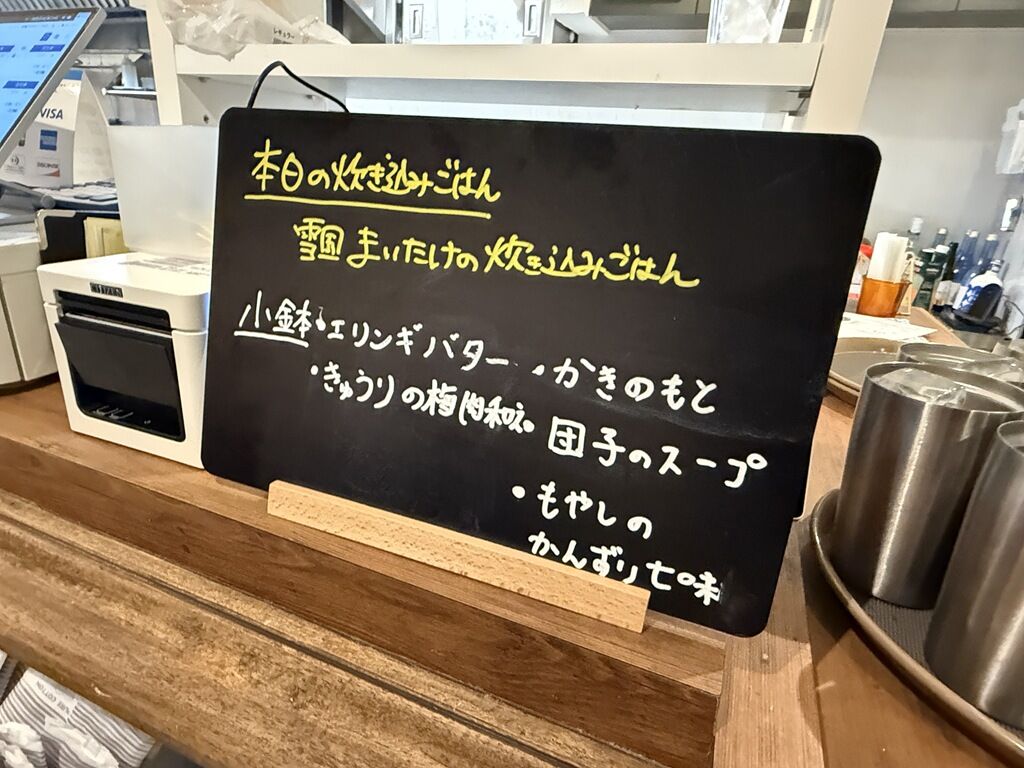 本日の炊き込みごはん
雪国まいたけの炊き込みごはん
小鉢・エリンギバター
・きゅうりの梅肉和え
・かきのもと
・団子のスープ
・もやしの
かんずり七味
VISA
DISCOVER
CITIZEN